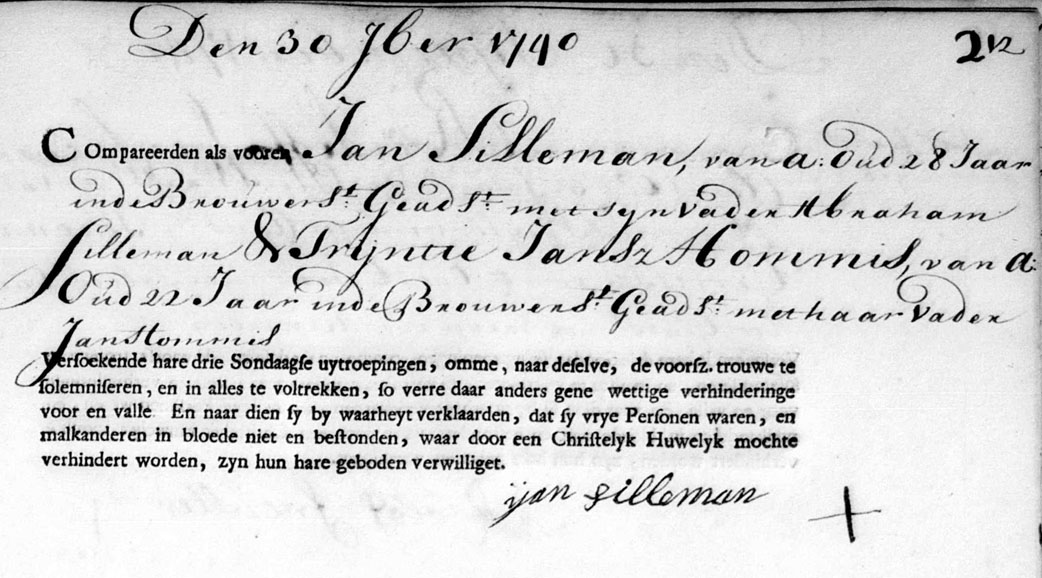 Den 30 Jber 1740 212
Compareerden als vooren Jan Silleman, van a: Oud 28 Jaar
inde Brouwer st: Geads:t met syn Vader Abraham
Silleman & Tryntie Jansz Hommis, van a:
Oud 22 Jaar inde Brouwer st: Geads:t met haar Vader
Jan Hommis
Versoekende hare drie Sondaagse uytroepingen, omme, naar deselve, de voorsz. trouwe te
solemniseren, en in alles te voltrekken, so verre daar anders gene wettige verhinderinge
voor en valle. En naar dien sy by waarheyt verklaarden, dat sy vrye Personen waren, en
malkanderen in bloede niet en bestonden, waar door een Christelyk Huwelyk mochte
verhindert worden, zyn hun hare geboden verwilliget.
ijan silleman